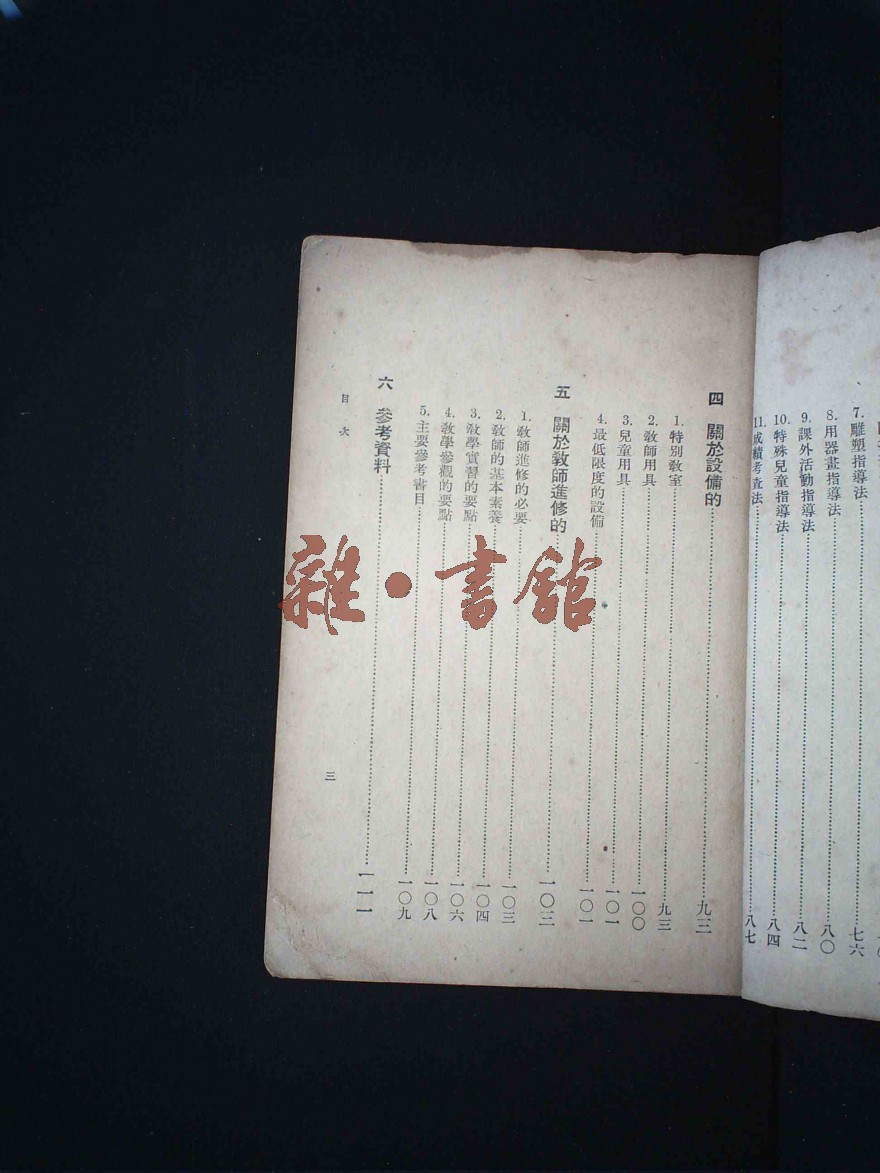 7. 雕塑指導法 七六
8. 用器畫指導法 八〇
9. 課外活動指導法 八二
10. 特殊兒童指導法 八四
11. 成績考查法 八七
四 關於設備的 九三
1. 特別教室 九三
2. 教師用具 一〇〇
3. 兒童用具 一〇一
4. 最低限度的設備 一〇一
五 關於教師進修的 一〇三
1. 教師進修的必要 一〇三
2. 教師的基本素養 一〇四
3. 教學實習的要點 一〇六
4. 教學參觀的要點 一〇八
5. 主要參考書目 一〇九
六 參考資料 一一一
目次
三
雜·書館